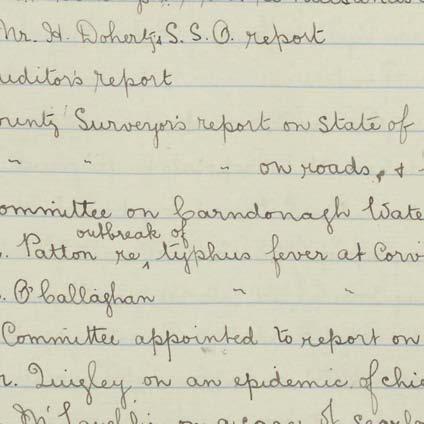 Mr. H. Doherty, S. S. O. report
uditor's report
ounty Surveyor's report on State of
" " " on roads, & 
ommittee on Carndonagh Wate
outbreak of
. Patton re ^ typhus fever at Corv
. O'Callaghan " "
Committee appointed to report on
r. Quigley on an epidemic of chic